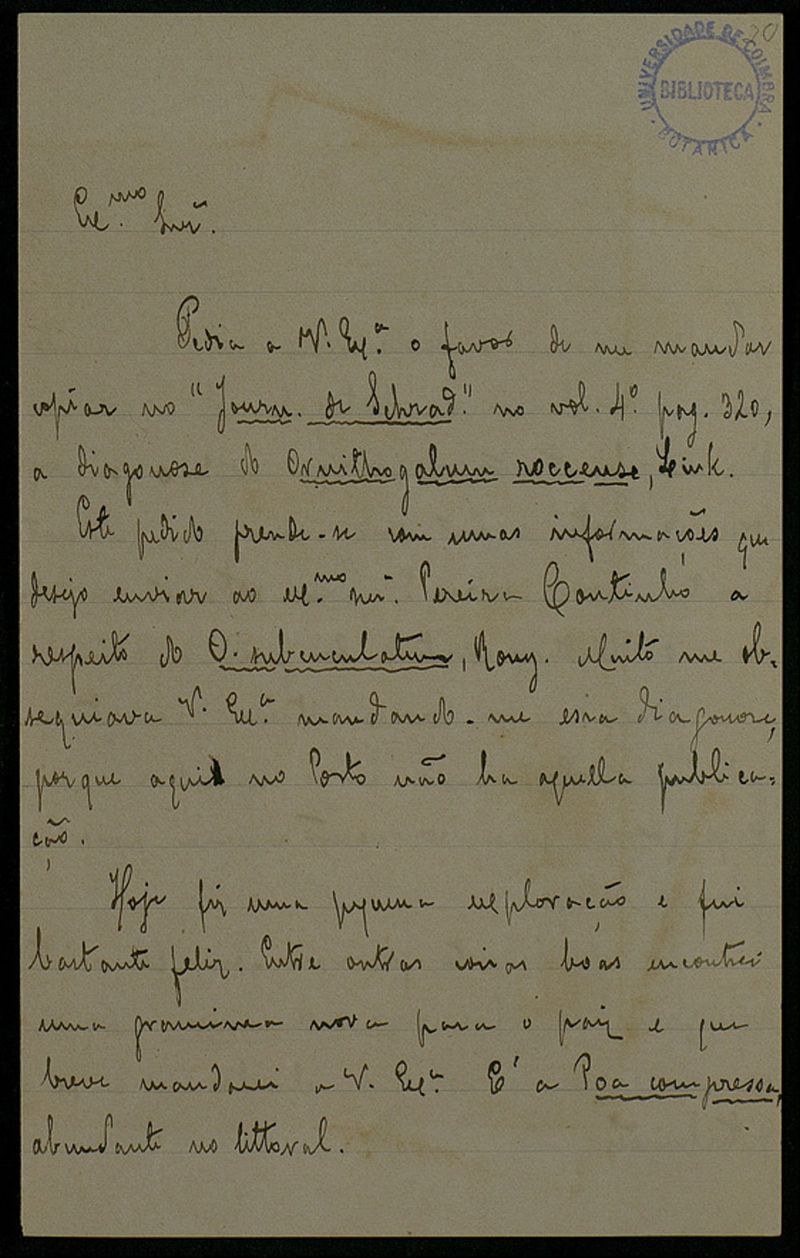 20
UNIVERSIDADE DE COIMBRA
BIBLIOTECA
BOTANICA
Ex.mo Snr.
Pedia a V. Ex.a o favor de me mandar
copiar no "Journ. de Schrad." no vol. 4.º pag. 320,
a diagnose do Ornithogalum roccense, Link.
Este pedido prende-se com umas informações que
desejo enviar ao ex.mo snr. Pereira Coutinho a
respeito do O. subcuculatum, Rouy. Muito me ob-
sequiava V. Ex.a mandando-me essa diagnose,
porque aqui no Porto não ha aquella publica-
ção.
Hoje fiz uma pequena exploração e fui
bastante feliz. Entre outras coisas boas encontrei
uma graminea nova para o paiz e que
breve mandarei a V. Ex.a E' a Poa compressa,
abundante no littoral.